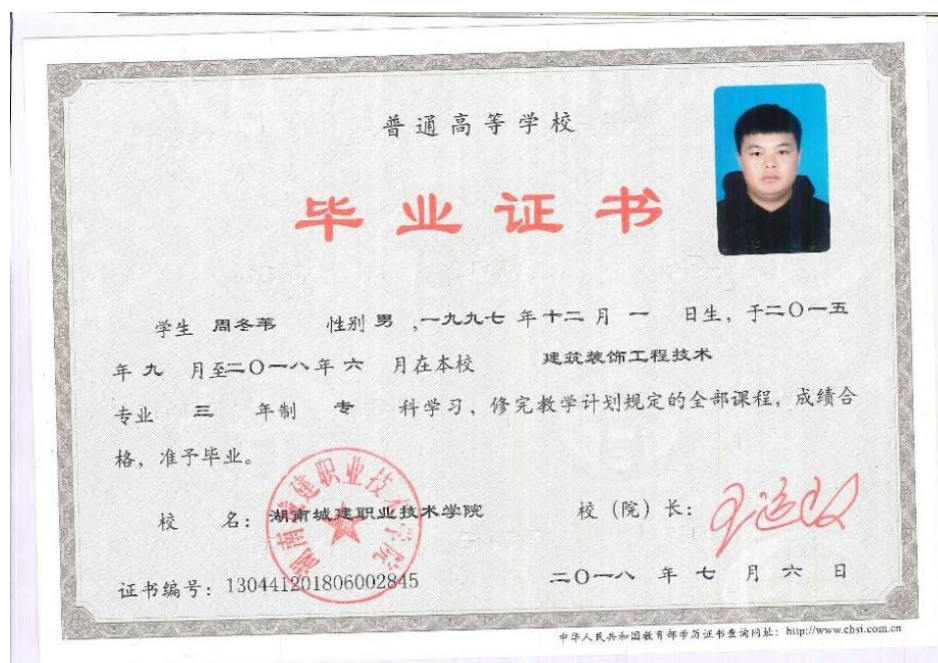 普通高等学校
毕业证书
学生 周冬苇 性别 男 ,一九九七 年 十二 月 一 日生, 于二〇一五
年 九 月至二〇一八年 六 月在本校 建筑装饰工程技术
专业 三 年制 专 科学习, 修完教学计划规定的全部课程, 成绩合
格, 准予毕业。
湖南城建职业技术学院
校 名: 湖南城建职业技术学院 校(院)长:
证书编号: 130441201806002845 二〇一八 年 七 月 六 日
中华人民共和国教育部学历证书查询网址: http://www.chsi.com.cn